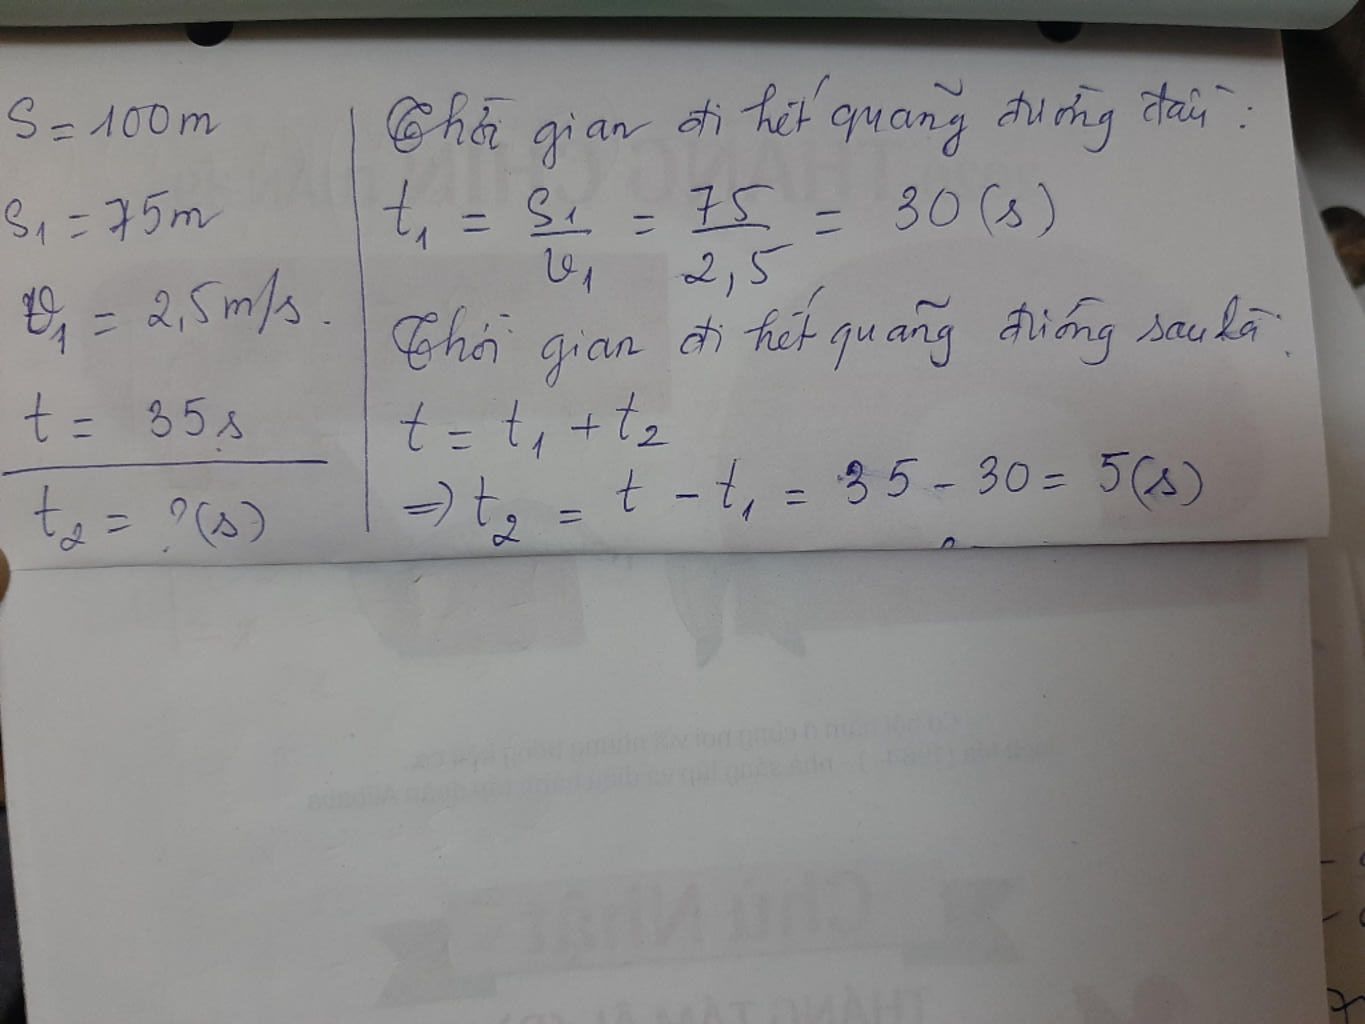 S = 100m
S₁ = 75m
v₁ = 2,5m/s.
t = 35s
t₂ = ?(s)
Thời gian đi hết quãng đường đầu:
t₁ = S₁/v₁ = 75/2,5 = 30 (s)
Thời gian đi hết quãng đường sau là:
t = t₁ + t₂
=> t₂ = t - t₁ = 35 - 30 = 5(s)
Chủ Nhật